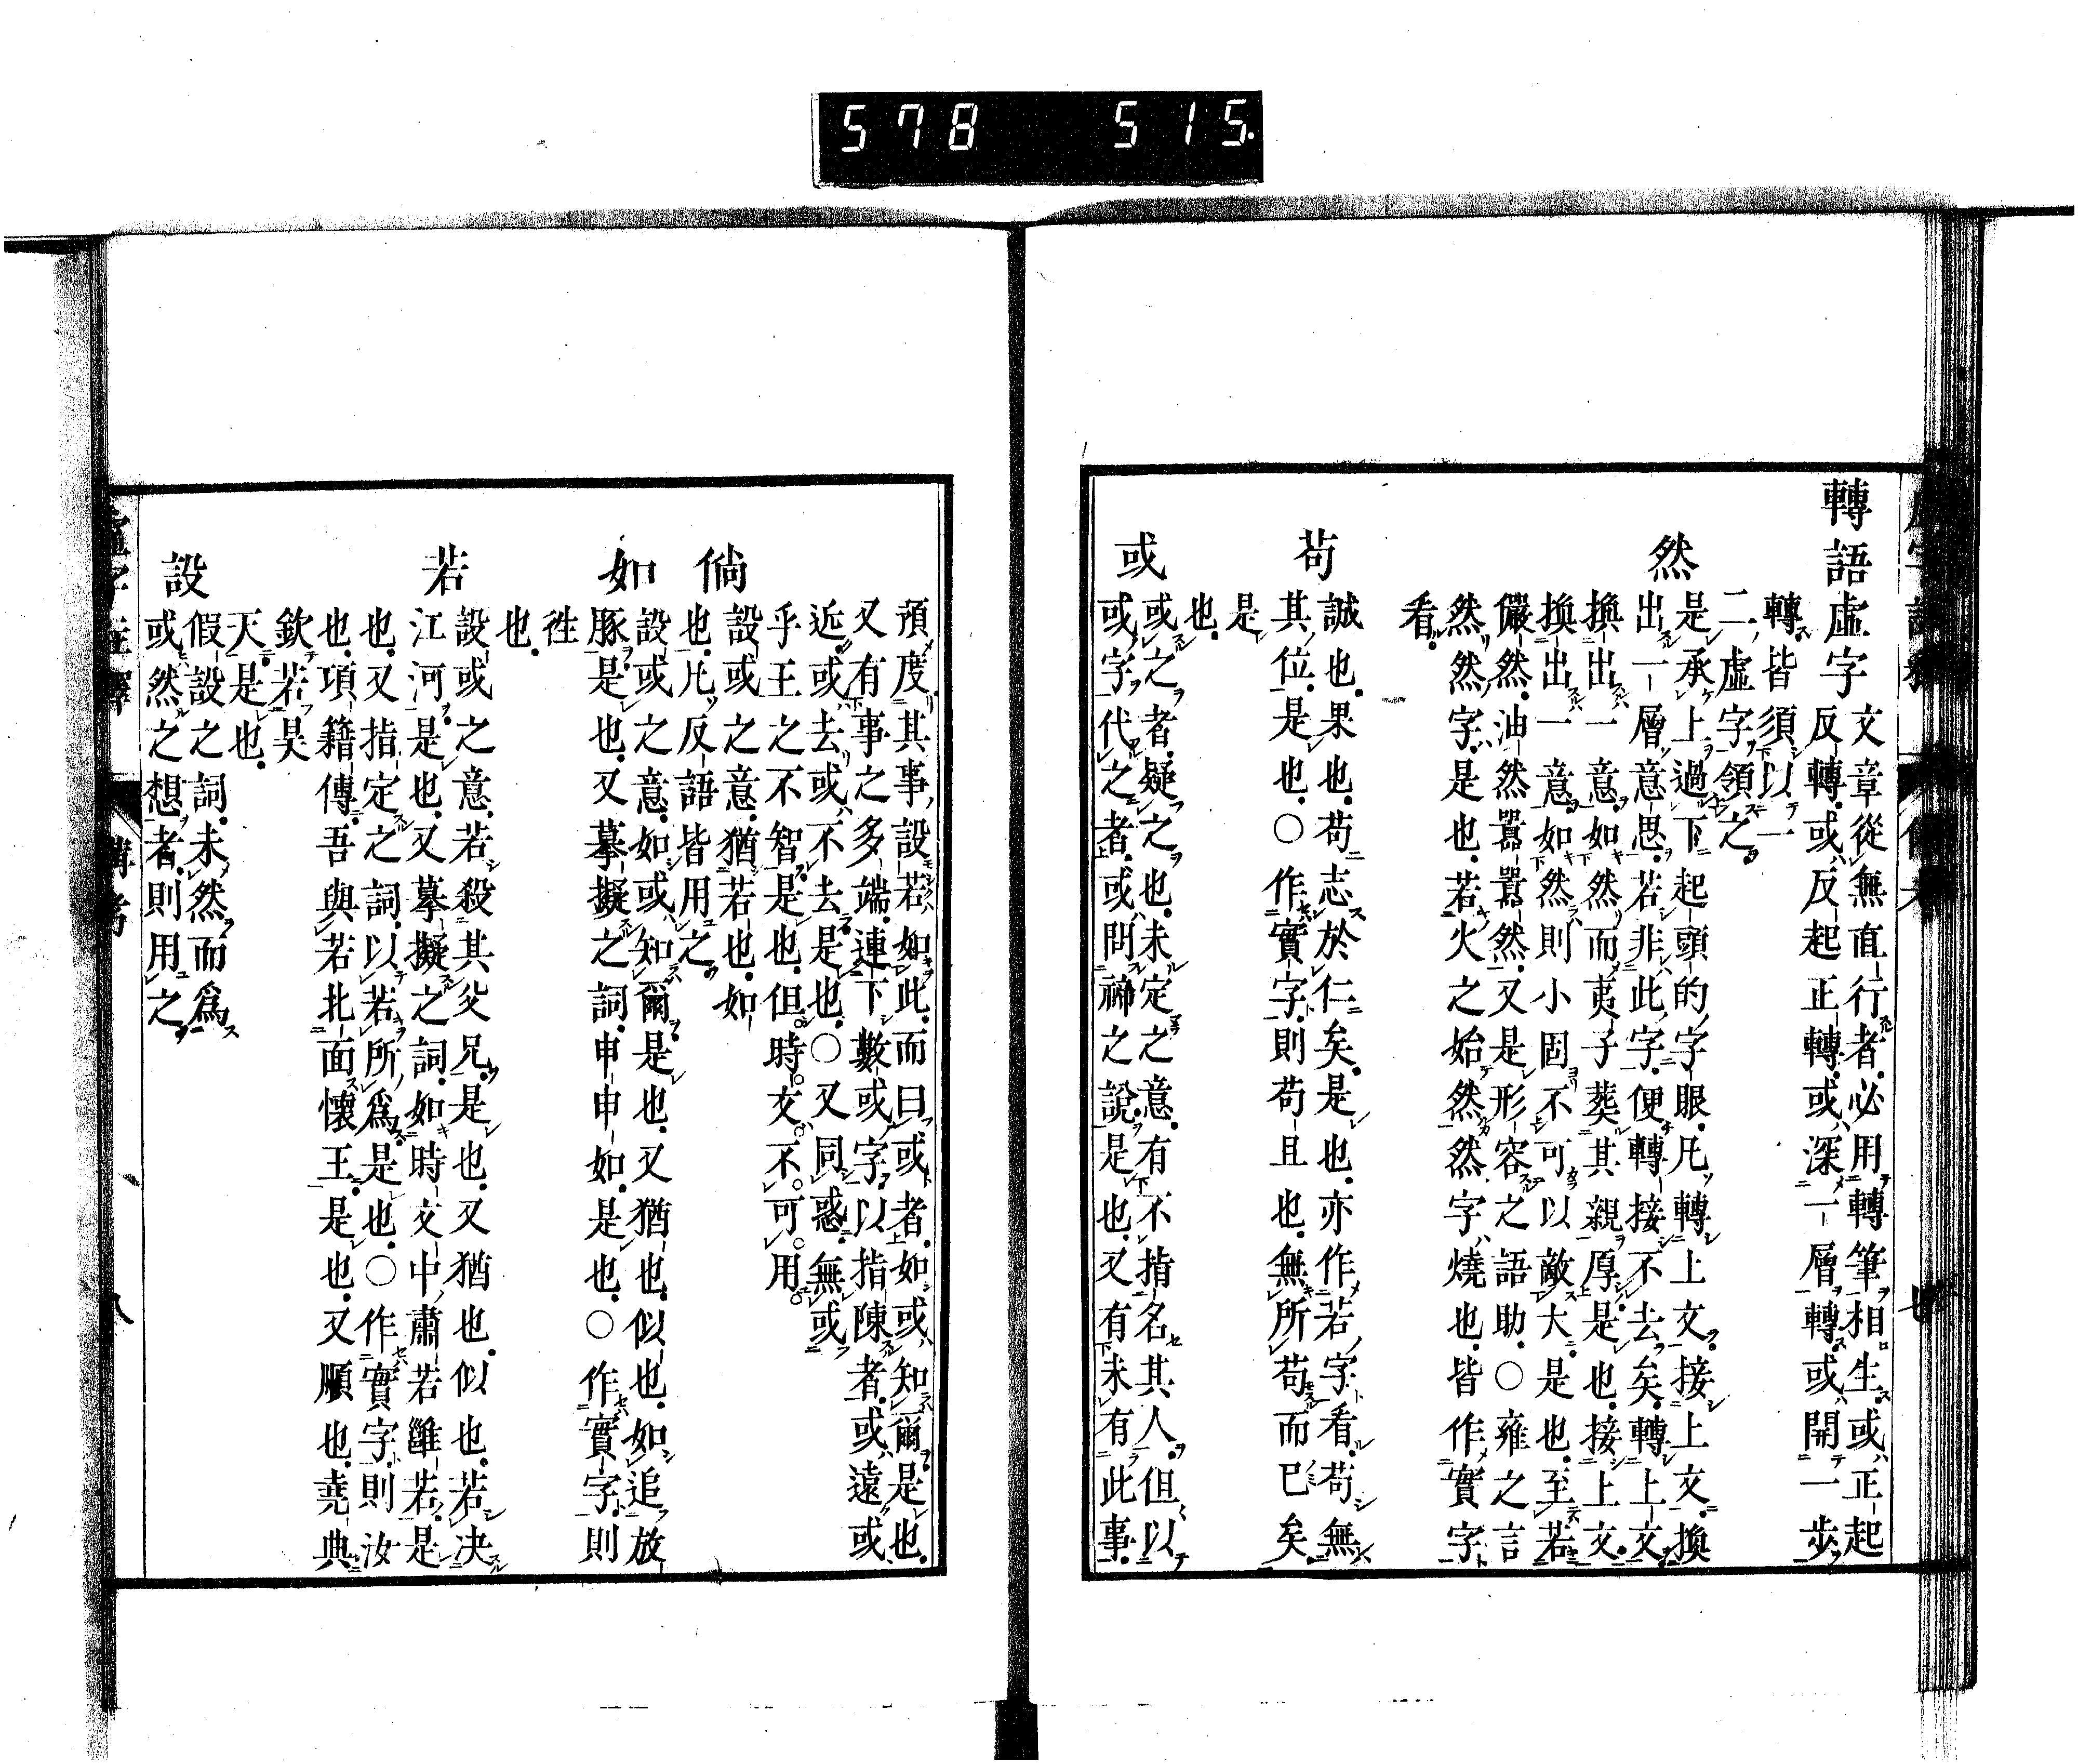 578 515.
轉語虛字
文章從無直行者必用轉筆相生或正起
反轉或反起正轉或深一層轉或開一步
轉皆須以一
二虛字領之
然
是承上過下起頭的字眼凡轉上文接上文換
出一層意思若非此字便轉接不去矣轉上文
換出一意如然而夷子葬其親厚是也接上文
換出一意如然則小固不可以敵大是也至若
儼然油然囂囂然又是形容之語助○雍之言
然然字是也若火之始然然字燒也皆作實字
看
苟
誠也果也苟志於仁矣是也亦作若字看苟無
其位是也○作實字則苟且也無所苟而已矣
是
也
或
或之者疑之也未定之意有不指名其人但以
或字代之者或問禘之說是也又有未有此事
預度其事設若如此而曰或者如或知爾是也
又有事之多端連下數或字以指陳者或遠或
近或去或不去是也○又同惑無或
乎王之不智是也但時文不可用
倘
設或之意猶若也如
也凡反語皆用之
如
設或之意如或知爾是也又猶也似也如追放
豚是也又摹擬之詞申申如是也○作實字則
徃
也
若
設或之意若殺其父兄是也又猶也似也若决
江河是也又摹擬之詞如時文中肅若雝若是
也又指定之詞以若所爲是也○作實字則汝
也項籍傳吾與若北面懷王是也又順也堯典
欽若昊
天是也
設
假設之詞未然而爲
或然之想者則用之
虛字註釋 備考 八